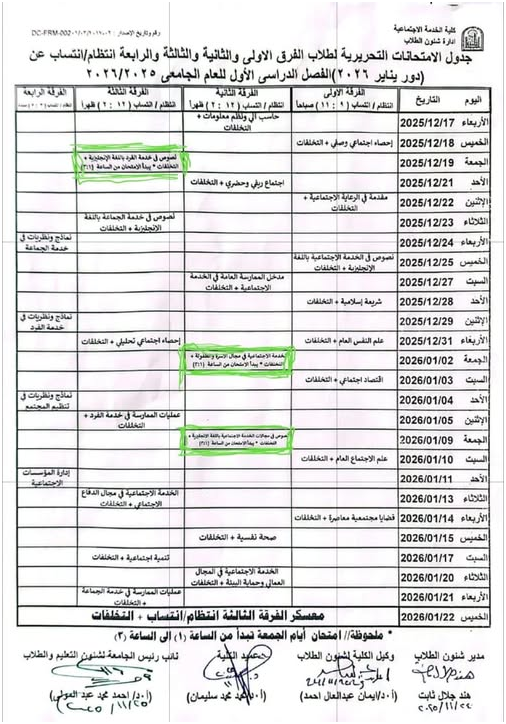 كلية الخدمة الاجتماعية
إدارة شئون الطلاب
جدول الامتحانات التحريرية لطلاب الفرق الاولى والثانية والثالثة والرابعة انتظام/انتساب عن
(دور يناير ٢٠٢٦) الفصل الدراسى الأول للعام الجامعى ٢٠٢٦/٢٠٢٥
اليوم التاريخ الفرقة الأولى الفرقة الثانية الفرقة الثالثة الفرقة الرابعة
انتظام / انتساب (٩ : ١١) صباحاً انتظام / انتساب (١٢ : ٢) ظهراً انتظام / انتساب (١٢ : ٢) ظهراً
الأربعاء 2025/12/17 حاسب الي ونظم معلومات + التخلفات
الخميس 2025/12/18 إحصاء اجتماعي وصفي + التخلفات
الجمعة 2025/12/19 نصوص في خدمة الفرد باللغة الإنجليزية + التخلفات * يبدأ الامتحان من الساعة (٣:١)
الأحد 2025/12/21 اجتماع ريفي وحضري + التخلفات
الإثنين 2025/12/22 مقدمة في الرعاية الاجتماعية + التخلفات
الثلاثاء 2025/12/23 نصوص في خدمة الجماعة باللغة الإنجليزية + التخلفات
الأربعاء 2025/12/24 نماذج ونظريات في خدمة الجماعة
الخميس 2025/12/25 نصوص في الخدمة الاجتماعية باللغة الإنجليزية + التخلفات
السبت 2025/12/27 مدخل الممارسة العامة في الخدمة الاجتماعية + التخلفات
الأحد 2025/12/28 شريعة إسلامية + التخلفات
الإثنين 2025/12/29 نماذج ونظريات في خدمة الفرد
الأربعاء 2025/12/31 علم النفس العام + التخلفات إحصاء اجتماعي تحليلي + التخلفات
الجمعة 2026/01/02 خدمة الاجتماعية في مجال الاسرة والطفولة + التخلفات * يبدأ الامتحان من الساعة (٣:١)
السبت 2026/01/03 اقتصاد اجتماعي + التخلفات
الأحد 2026/01/04 نماذج ونظريات في تنظيم المجتمع
الإثنين 2026/01/05 عمليات الممارسة في خدمة الفرد + التخلفات
الجمعة 2026/01/09 نصوص في مجالات الخدمة الاجتماعية باللغة الإنجليزية + التخلفات * يبدأ الامتحان من الساعة (٣:١)
السبت 2026/01/10 علم الاجتماع العام + التخلفات
الأحد 2026/01/11 إدارة المؤسسات الاجتماعية
الثلاثاء 2026/01/13 الخدمة الاجتماعية في مجال الدفاع الاجتماعي + التخلفات
الأربعاء 2026/01/14 قضايا مجتمعية معاصرة + التخلفات
الخميس 2026/01/15 صحة نفسية + التخلفات
السبت 2026/01/17 تنمية اجتماعية + التخلفات
الثلاثاء 2026/01/20 الخدمة الاجتماعية في المجال العمالي وحماية البيئة + التخلفات
الأربعاء 2026/01/21 عمليات الممارسة في خدمة الجماعة + التخلفات
الخميس 2026/01/22 معسكر الفرقة الثالثة انتظام/انتساب + التخلفات
* ملحوظة// امتحان أيام الجمعة تبدأ من الساعة (١) إلى الساعة (٣)
مدير شئون الطلاب وكيل الكلية لشئون الطلاب عميد الكلية نائب رئيس الجامعة لشئون التعليم والطلاب
هند جلال ثابت (أ.د/إيمان عبدالعال احمد) (أ.د/ محمد محمد سليمان) (أ.د/ احمد محمد عبد المولى)